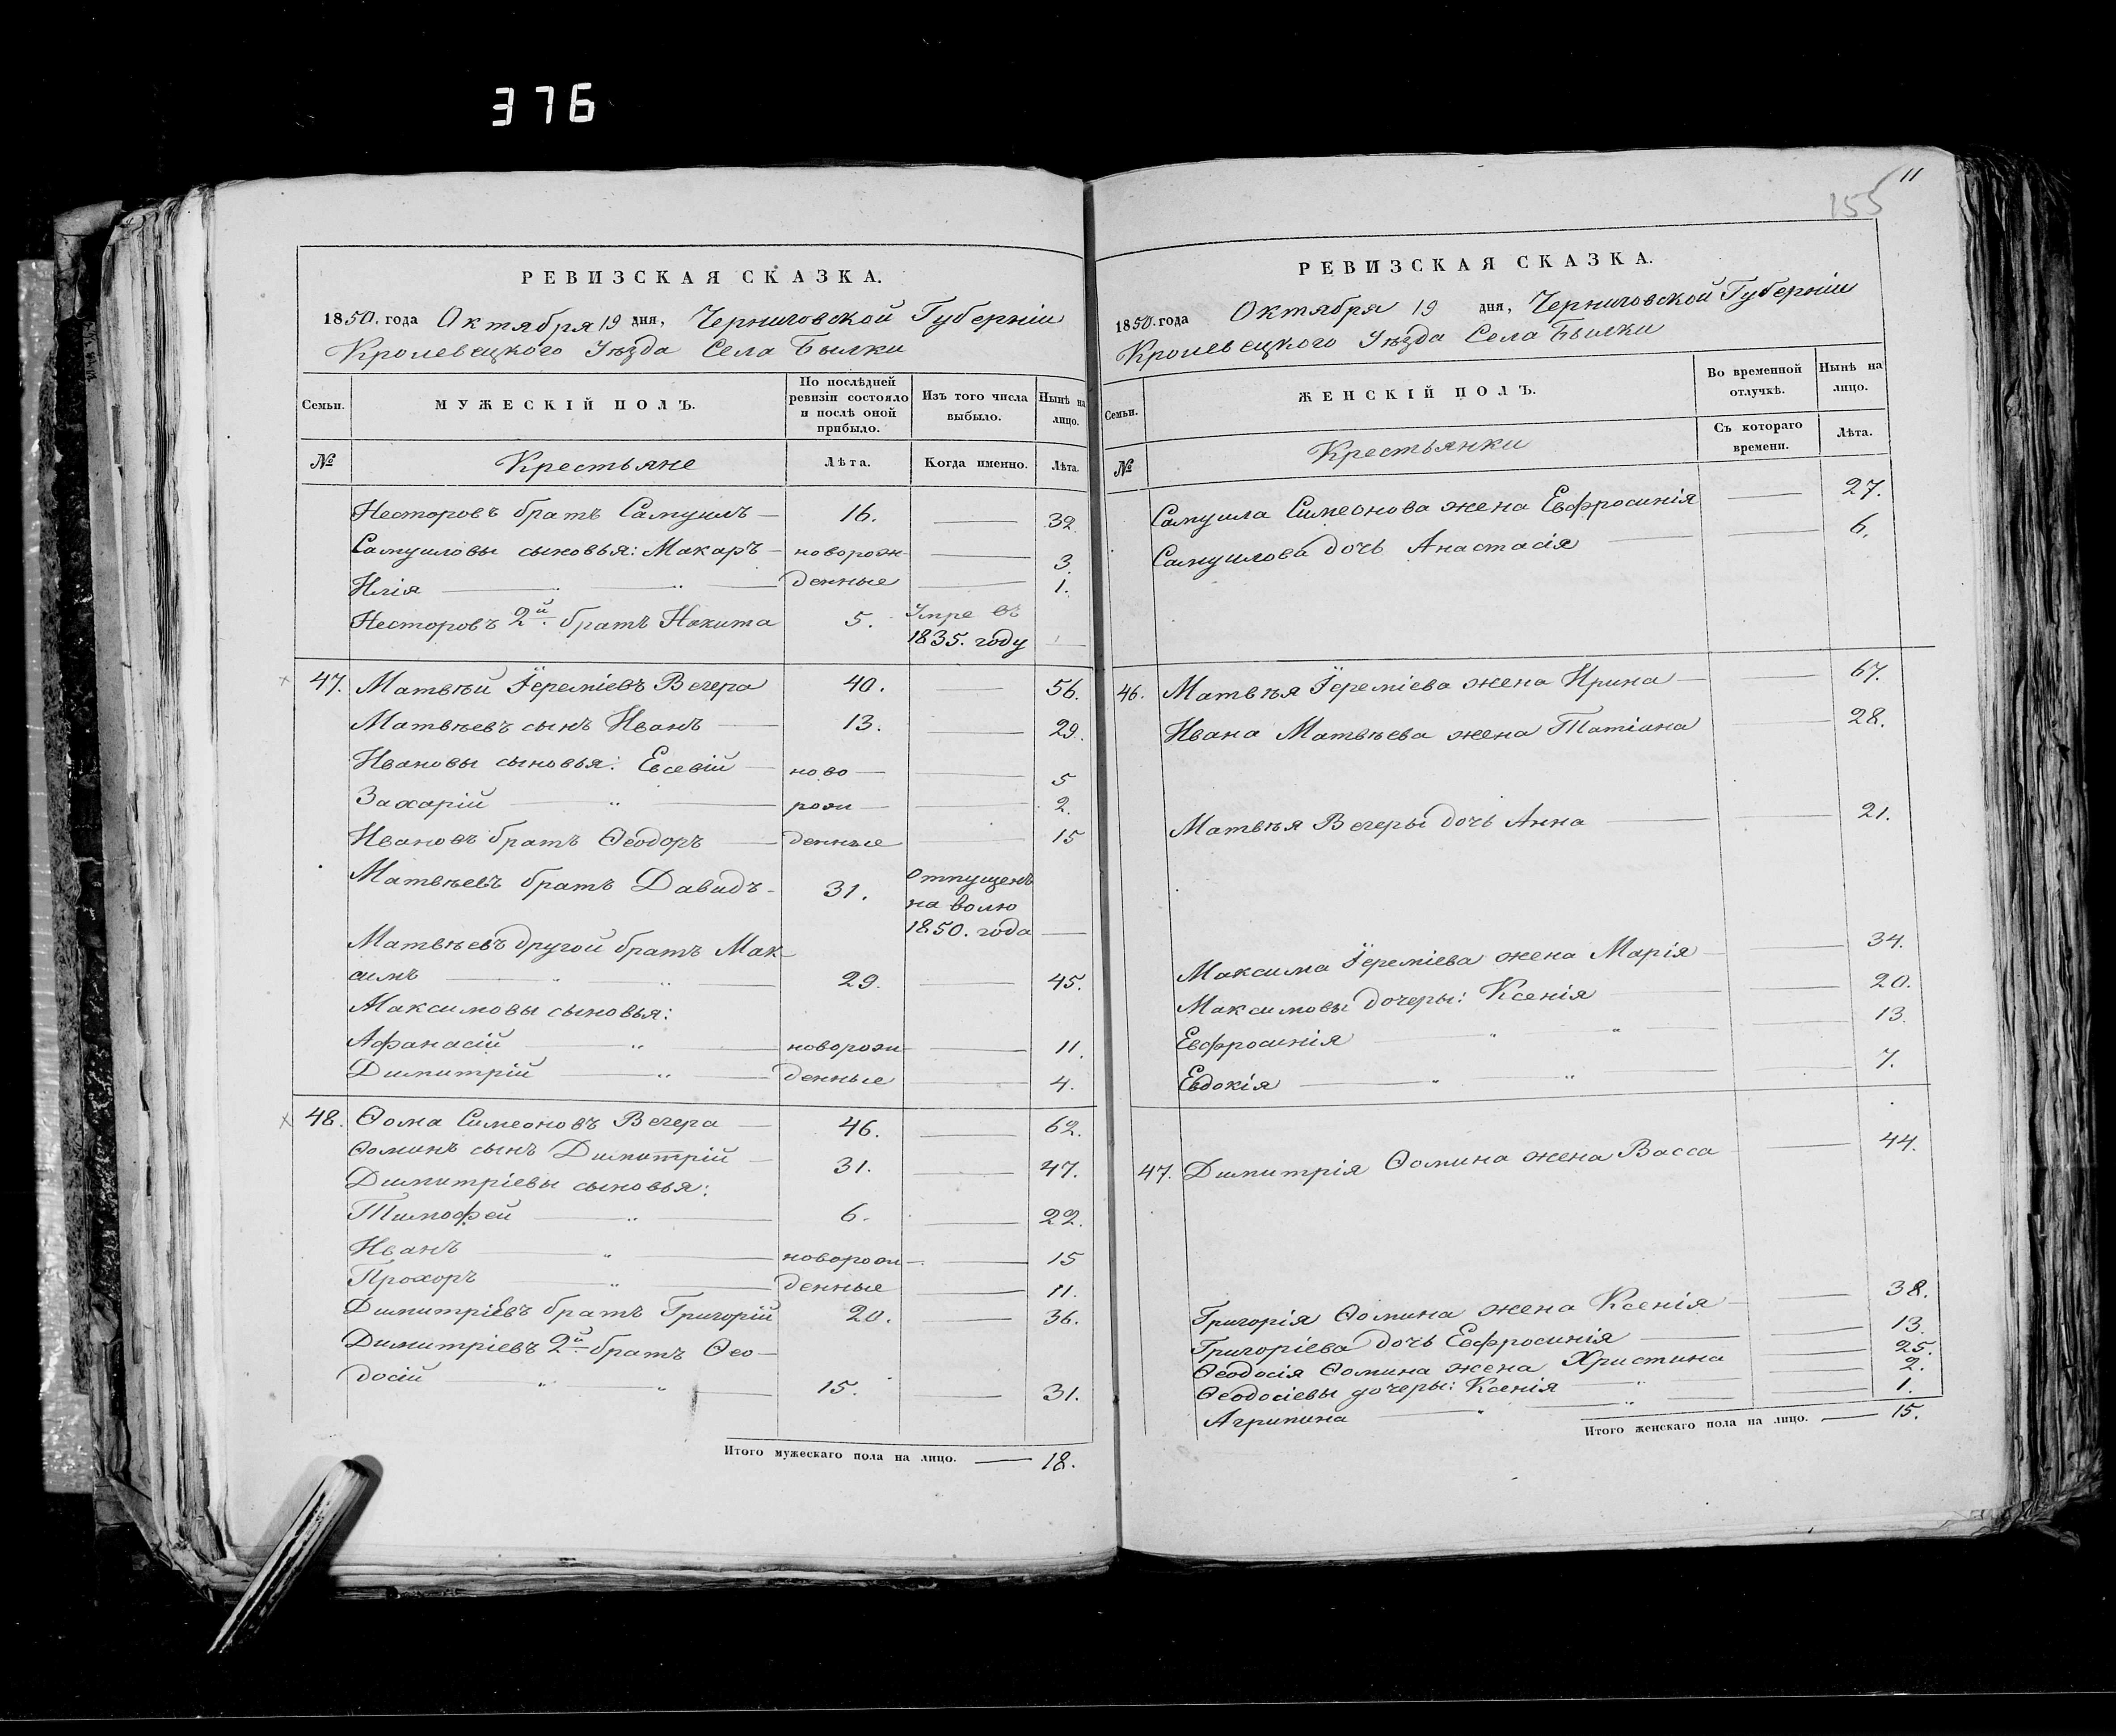 376
РЕВИЗСКАЯ СКАЗКА.
1850. года Октября 19 дня, Черниговской Губерніи
Кролевецкого Уѣзда Села Былки
Семьи.
МУЖЕСКІЙ ПОЛЪ.
По послѣдней ревизіи состояло и послѣ оной прибыло.
Изъ того числа выбыло.
Нынѣ на лицо.
№
Крестьяне
Лѣта.
Когда именно.
Лѣта.
Несторовъ братъ Самуилъ — 16. — 32
Самуиловы сыновья: Макаръ — новорож- — 3.
Илія — „ — денные — 1.
Несторовъ 2й. братъ Никита 5. Умре въ
1835. году —
47. Матвѣй Іереміевъ Вечера 40. — 56.
Матвѣевъ сынъ Иванъ — 13. — 29.
Ивановы сыновья: Евсевій — ново — — 5
Захарій — „ — рож — — 2.
Ивановъ братъ Ѳеодоръ — денные — 15
Матвѣевъ братъ Давидъ — 31. отпущенъ
на волю
1850. года —
Матвѣевъ другой братъ Мак-
симъ — „ „ — 29. — 45.
Максимовы сыновья:
Афанасій — „ — новорож- — 11.
Димитрій — „ — денные — 4.
48. Ѳома Симеоновъ Вечера — 46. — 62.
Ѳоминъ сынъ Димитрій — 31. — 47.
Димитріевы сыновья:
Тимофей — „ — 6. — 22.
Иванъ — „ — новорож- — 15
Прохоръ — „ — денные — 11.
Димитріевъ братъ Григорій 20. — 36.
Димитріевъ 2й. братъ Ѳео-
досій — „ „ — 15. — 31.
Итого мужескаго пола на лицо. — 18.
11
155
РЕВИЗСКАЯ СКАЗКА.
1850. года Октября 19 дня, Черниговской Губерніи
Кролевецкого Уѣзда Села Былки
Семьи.
ЖЕНСКІЙ ПОЛЪ.
Во временной отлучкѣ.
Нынѣ на лицо.
№
Крестьянки
Съ котораго времени.
Лѣта.
Самуила Симеонова жена Евфросинія — 27.
Самуилова дочь Анастасія — — 6.
46. Матвѣя Іереміева жена Ирина — — 67.
Ивана Матвѣева жена Татіана — 28.
Матвѣя Вечеры дочь Анна — — 21.
Максима Іереміева жена Марія — — 34.
Максимовы дочеры: Ксенія — — 20.
Евфросинія — „ „ — — 13.
Евдокія — „ „ — — 7.
47. Димитрія Ѳомина жена Васса — — 44.
Григорія Ѳомина жена Ксенія — — 38.
Григоріева дочь Евфросинія — — 13.
Ѳеодосія Ѳомина жена Христина — 25.
Ѳеодосіевы дочеры: Ксенія — „ — 2.
Агрипина — „ „ — 1.
Итого женскаго пола на лицо. — 15.